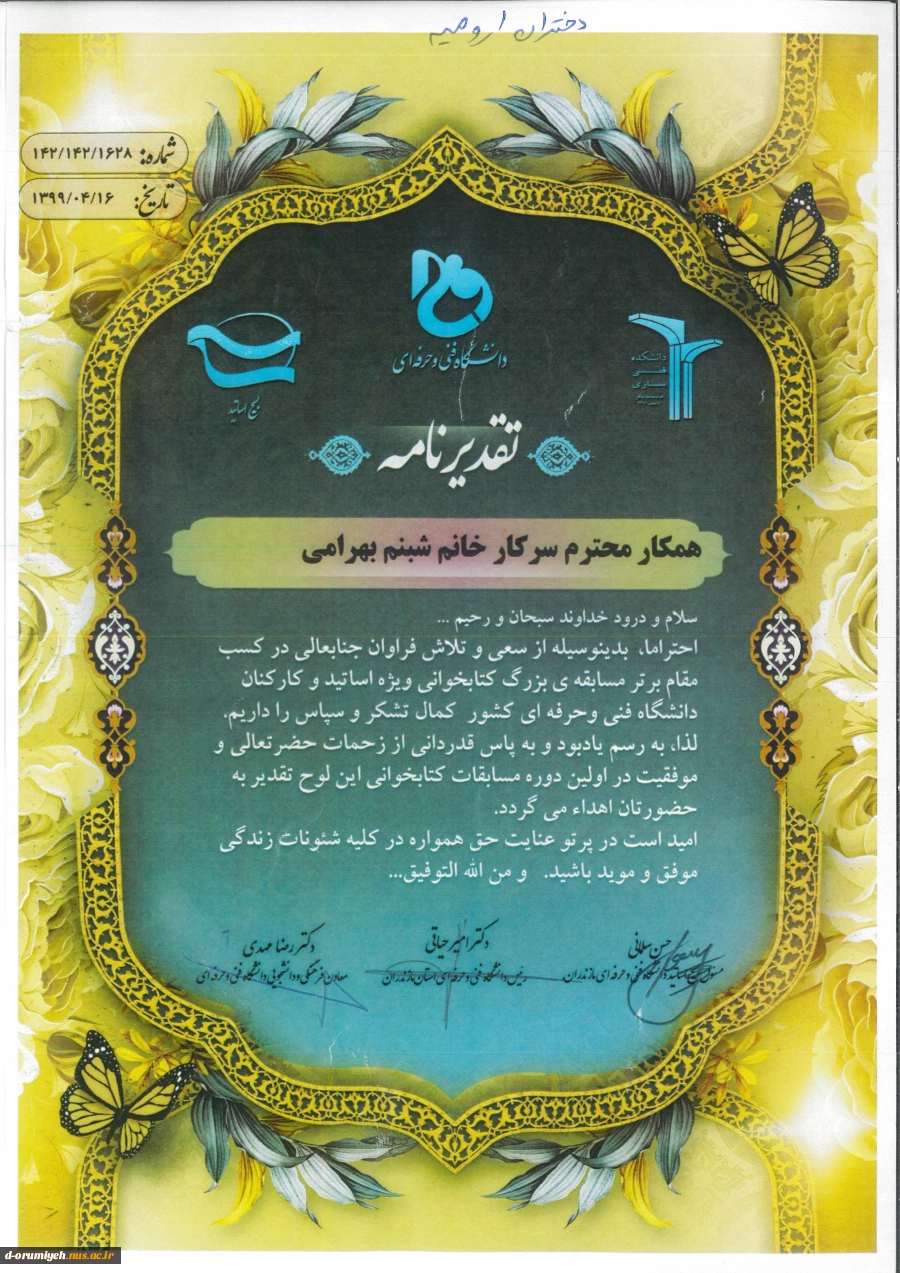 دختران ارومیه
شماره: ۱۴۲/۱۴۲/۱۶۲۸
تاریخ: ۱۳۹۹/۰۴/۱۶
دانشگاه فنی و حرفه ای
دانشکده
فنی
ساری
بسیج اساتید
تقدیرنامه
همکار محترم سرکار خانم شبنم بهرامی
سلام و درود خداوند سبحان و رحیم ...
احتراما، بدینوسیله از سعی و تلاش فراوان جنابعالی در کسب
مقام برتر مسابقه ی بزرگ کتابخوانی ویژه اساتید و کارکنان
دانشگاه فنی وحرفه ای کشور کمال تشکر و سپاس را داریم.
لذا، به رسم یادبود و به پاس قدردانی از زحمات حضرتعالی و
موفقیت در اولین دوره مسابقات کتابخوانی این لوح تقدیر به
حضورتان اهداء می گردد.
امید است در پرتو عنایت حق همواره در کلیه شئونات زندگی
موفق و موید باشید. و من الله التوفیق...
حسن سلمانی
مسئول بسیج اساتید دانشگاه فنی و حرفه ای مازندران
دکتر امیر حیاتی
رییس دانشگاه فنی و حرفه ای استان مازندران
دکتر رضا مهدی
معاون فرهنگی و دانشجویی دانشگاه فنی و حرفه ای
d-orumiyeh.nus.ac.ir